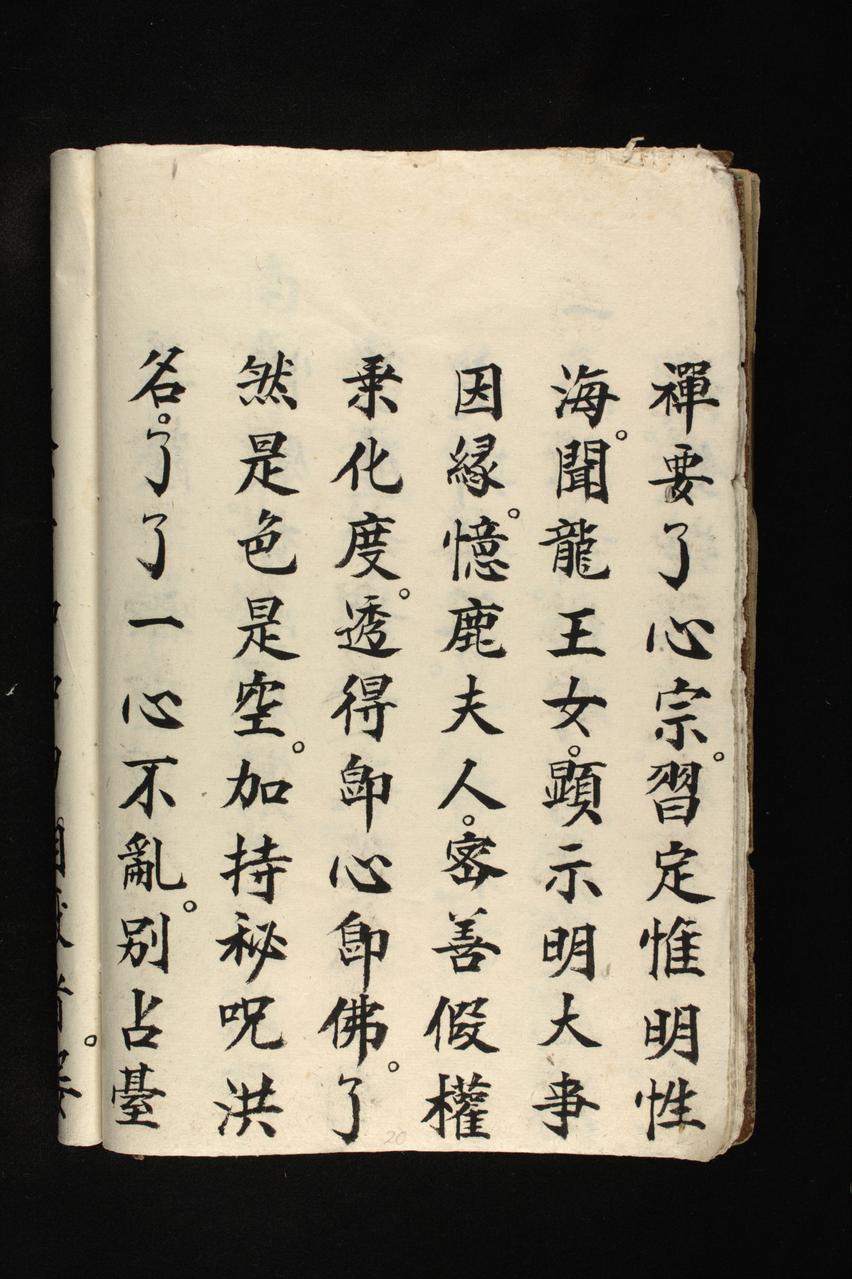 禪要了心宗。習定惟明性
海。聞龍王女。顕示明大事
因縁。憶鹿夫人。密善假權
乗化度。透得即心即佛。了
然是色是空。加持秘呪洪
名。了了一心不亂。别占臺
20